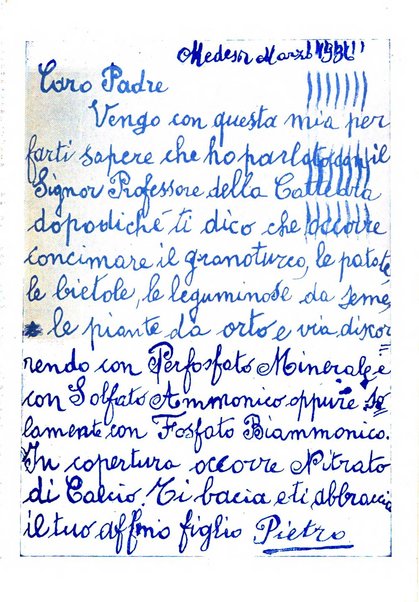 Medesn Marzo 1936
Caro Padre
Vengo con questa mia per
farti sapere che ho parlato con il
Signor Professore della Cattedra
dopodiché ti dico che occorre
concimare il granoturco, le patate
le bietole, le leguminose da seme,
le piante da orto e via discor
rendo con Perfosfato Minerale e
con Solfato Ammonico oppure so
lamente con Fosfato Biammonico.
In copertura occorre Nitrato
di Calcio. Ti bacia e ti abbraccia
il tuo affmo figlio Pietro